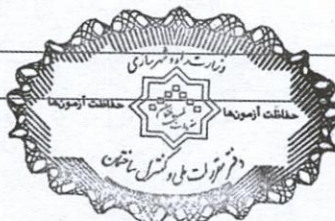 وزارت راه و شهرسازی
حفاظت آزمون‌ها
مقررات ملی ساختمان
حفاظت آزمون‌ها
دفتر مقررات ملی و کنترل ساختمان